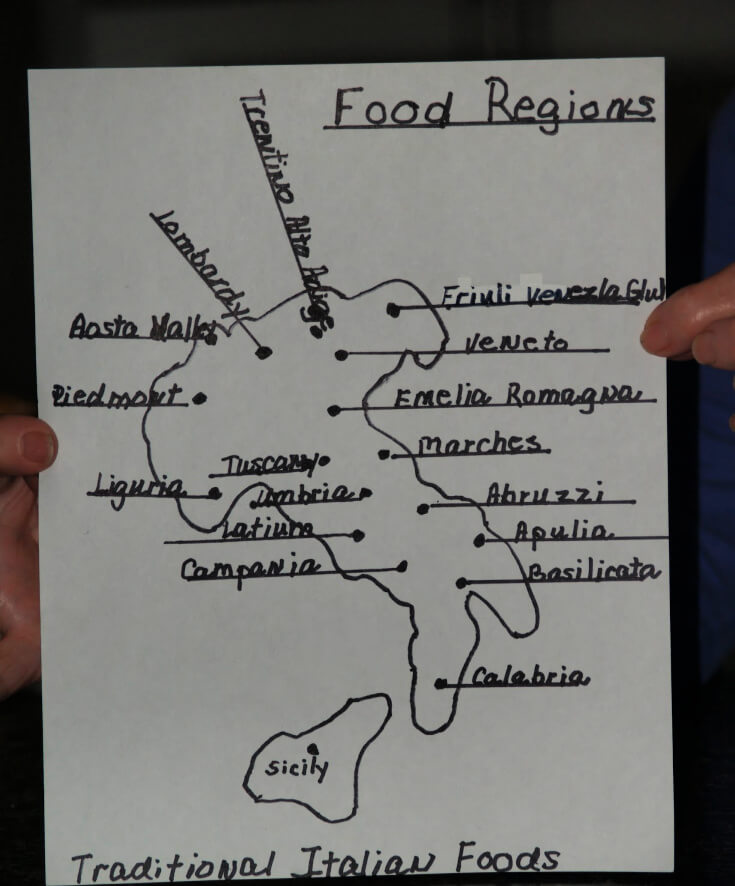 Food Regions
Trentino Alto Adige
Lombardy
Friuli Venezla Giul
Aosta Valley
Veneto
Piedmont
Emelia Romagna
Marches
Tuscany
Liguria
Umbria
Abruzzi
Latium
Apulia
Campania
Basilicata
Calabria
Sicily
Traditional Italian Foods